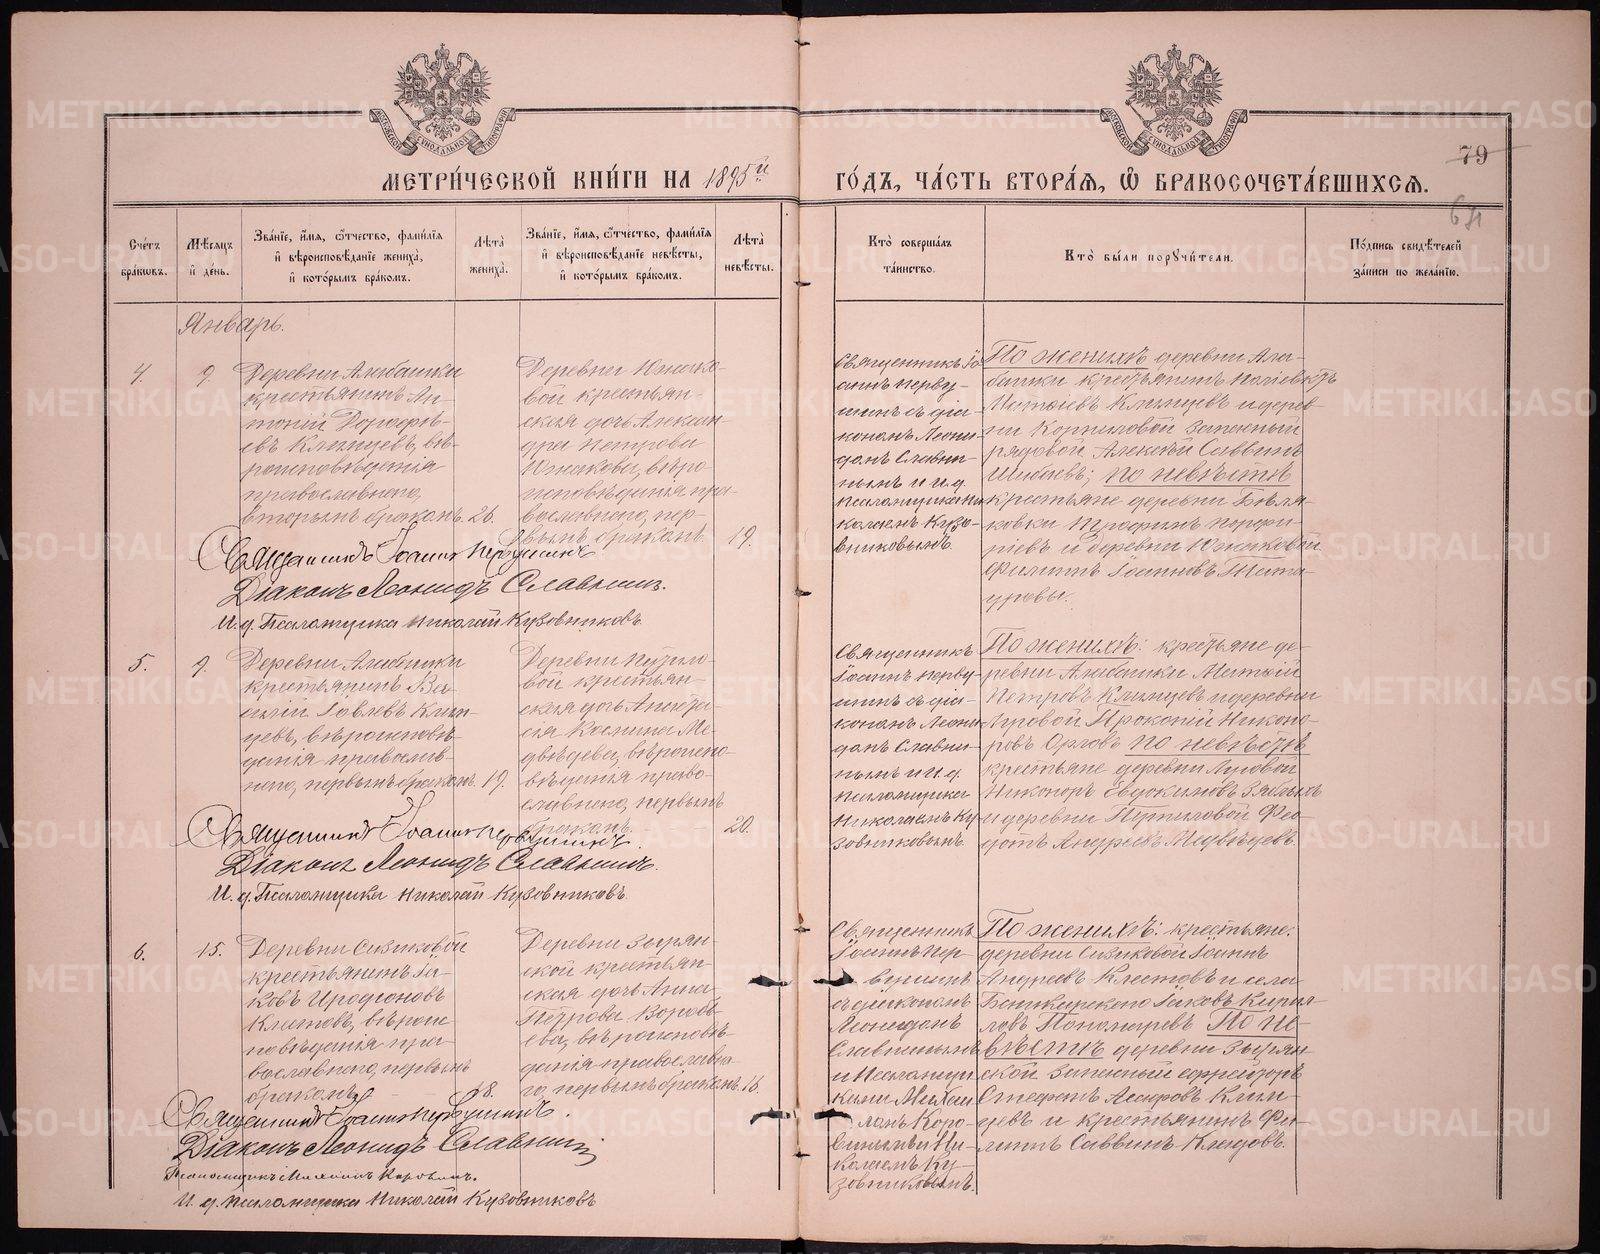 МЕТРИ́ЧЕСКОЙ КНИ́ГИ НА 1895й
ГО́ДЪ, ЧА́СТЬ ВТОРА́Я, Ѿ БРАКОСОЧЕТА́ВШИХСЯ.
79
Сче́тъ бра́кѡвъ.
Мѣ́сяцъ и де́нь.
Зва́нїе, и́мя, ѻ́тчество, фами́лїя и вѣроисповѣ́данїе жениха̀, и кото́рымъ бра́комъ.
Лѣ́та жениха̀.
Зва́нїе, и́мя, ѻ́тчество, фами́лїя и вѣроисповѣ́данїе невѣ́сты, и кото́рымъ бра́комъ.
Лѣ́та невѣ́сты.
Кто̀ соверша́лъ та́инство.
Кто̀ бы́ли порꙋчи́тели.
По́дпись свидѣ́телей за́писи по жела́нїю.
Январь.
4.
9.
Деревни Алабашки
крестьянинъ Ан-
тоній Дорофѣ-
евъ Клещевъ, вѣ-
роисповѣданія
православнаго,
вторымъ бракомъ.
26.
Деревни Южако-
вой крестьян-
ская дочь Алексан-
дра Петрова
Южакова, вѣро-
исповѣданія пра-
вославнаго, пер-
вымъ бракомъ.
19.
Священникъ Іо-
аннъ Перву-
шинъ съ діа-
кономъ Леони-
домъ Славни-
нымъ и И.д.
псаломщика Ни-
колаемъ Кузо-
вниковымъ.
По женихѣ деревни Ала-
башки крестьянинъ
Матѳеевъ Клещевъ и дерев-
ни Корниловой запасный
рядовой Алексѣй Саввинъ
по невѣстѣ
крестьяне деревни Бѣля-
ковки Трофимъ Порфи-
ріевъ и деревни Южаковой
Филиппъ Іоанновъ Шата-
уровы.
Священникъ Іоаннъ Первушинъ
Діаконъ Леонидъ Славнинъ.
И. д. Псаломщика Николай Кузовниковъ
5.
9.
Деревни Алабашки
крестьянинъ Ва-
силій Іовлевъ Клещ-
евъ, вѣроисповѣ-
данія православ-
наго, первымъ бракомъ.
19.
Деревни
вой крестьян-
ская дочь Анаста-
сія Космина Ме-
двѣдева, вѣроиспо-
вѣданія право-
славнаго, первымъ
бракомъ.
20.
Священникъ
Іоаннъ Перву-
шинъ съ діа-
кономъ Леони-
домъ Славни-
нымъ и И.д.
Псаломщика
Николаемъ Ку-
зовниковымъ.
По женихѣ: крестьяне де-
ревни Алабашки
Петровъ Клещевъ и деревни
Луговой Прокопій Никано-
ровъ Орловъ по невѣстѣ
крестьяне деревни Луговой
Никаноръ Евдокимовъ
и деревни Ѳео-
дотъ Андреевъ Медвѣдевъ.
Священникъ Іоаннъ Первушинъ.
Діаконъ Леонидъ Славнинъ.
И. д. Псаломщика Николай Кузовниковъ
6.
15.
Деревни Сизиковой
крестьянинъ Іа-
ковъ Иродіоновъ
вѣроис-
повѣданія пра-
вославнаго, первымъ
бракомъ
18.
Деревни Зырян-
ской крестьян-
ская дочь Анна
Петрова Вороб-
ева, вѣроисповѣ-
данія православна-
го, первымъ бракомъ.
16.
Священникъ
Іоаннъ Пер-
вушинъ
съ діакономъ
Леонидомъ
Славнинымъ
и Псаломщи-
ками Михаи-
ломъ Коро-
винымъ и Ни-
колаемъ Ку-
зовниковымъ.
По женихѣ: крестьяне:
деревни Сизиковой Іоаннъ
Андреевъ и села
Башкирскаго Іаковъ Кирил-
ловъ Пономаревъ По не-
вѣстѣ деревни Зырян-
ской запасный ефрейторъ
Стефанъ
и крестьянинъ Фи-
липпъ Саввинъ
Священникъ Іоаннъ Первушинъ.
Діаконъ Леонидъ Славнинъ
Псаломщикъ Михаилъ Коровинъ.
И. д. псаломщика Николай Кузовниковъ